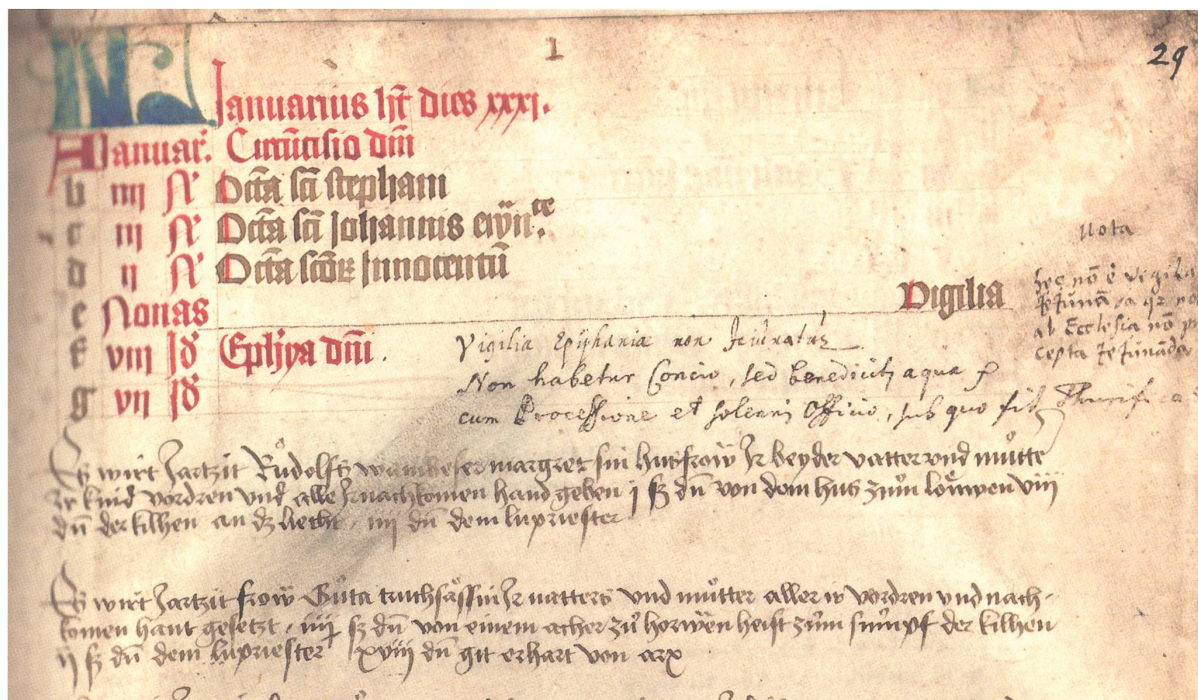 1
29
KL
Januarius ht dies xxxj.
A Januar. Circucisio dni
b iiij N Octa sci stephani
c iij N Octa sci Johannis ewn.te
d ij N Octa scor Innocentu
e Nonas Vigilia
f viij Id Ephya dni.
g vij Id
Nota
hec no e vigilia
ab Ecclesia no
Vigilia Epiphaniæ non Jeiunatur.
Non habetur Concio, sed benedicitz aqua
cum Processione et solenni Officio, sub quo fit Thurifica
Es wirt Jartzit Růdolfs wambeser margret sin husfrow Ir beyder vatter vnd můtter
Ir kind vordren vnd alle Ir nachkomen hand geben j ß dn von dem hus zům löwen viij
dn der kilhen an dz liecht . iiij dn dem lupriester
Es wirt Jartzit frow Gůta truchsässin Ir vatters vnd můtter aller ir vordren vnd nach-
komen hant gesetzt . iiij ß dn von einem acher zů horwen heist zům sumpf der kilhen
ij ß dn dem lupriester xviij dn git erhart von arx